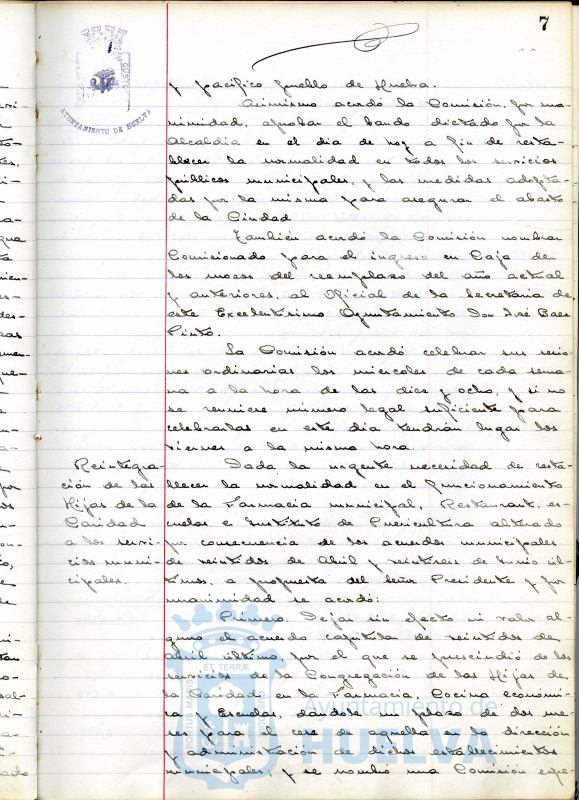 7
AYUNTAMIENTO DE HUELVA
y pacífico pueblo de Huelva.
Asimismo acordó la Comisión, por una
nimidad, aprobar el bando dictado por la
Alcaldía en el día de hoy a fin de resta-
blecer la normalidad en todos los servicios
públicos municipales, y las medidas adopta-
das por la misma para asegurar el abasto
de la Ciudad
También acordó la Comisión nombrar
Comisionado para el ingreso en Caja de
los mozos del reemplazo del año actual
y anteriores, al Oficial de la Secretaría de
este Excelentísimo Ayuntamiento Don José Baez
Pinto.
La Comisión acordó celebrar sus sesio
nes ordinarias los miercoles de cada sema
na a la hora de las diez y ocho, y si no
se reuniese número legal suficiente para
celebrarlas en este dia tendrán lugar los
viernes a la misma hora.
Reintegra-
ción de las
Hijas de la
Caridad
a los servi-
cios muni-
cipales.
Dada la urgente necesidad de resta-
blecer la normalidad en el funcionamiento
de la Farmacia municipal, Restaurant, es-
cuelas e Instituto de Puericultura alterado
por consecuencia de los acuerdos municipales
de veintidos de Abril y veintiseis de Junio úl-
timos, a propuesta del Señor Presidente y por
unanimidad se acordó:
Primero. Dejar sin efecto ni valor al-
guno el acuerdo capitular de veintidos de
Abril último, por el que se prescindió de los
servicios de la Congregación de las Hijas de
la Caridad en la Farmacia, Cocina económi
ca y Escuelas, dándole un plazo de dos me-
ses para el cese de aquella en la dirección
y administración de dichos establecimientos
municipales, y se nombró una Comisión espe-
ET TERRÆ
Ayuntamiento de
HUELVA